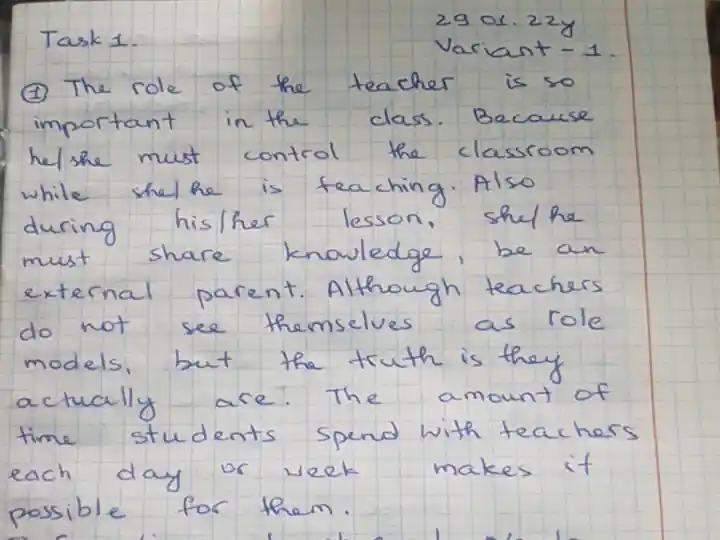 29 01.22y
Task 1.
Variant - 1.
① The role of the teacher is so
important in the class. Because
he/she must control the classroom
while she/he is teaching. Also
during his/her lesson, she/he
must share knowledge, be an
external parent. Although teachers
do not see themselves as role
models, but the truth is they
actually are. The amount of
time students spend with teachers
each day or week makes it
possible for them.